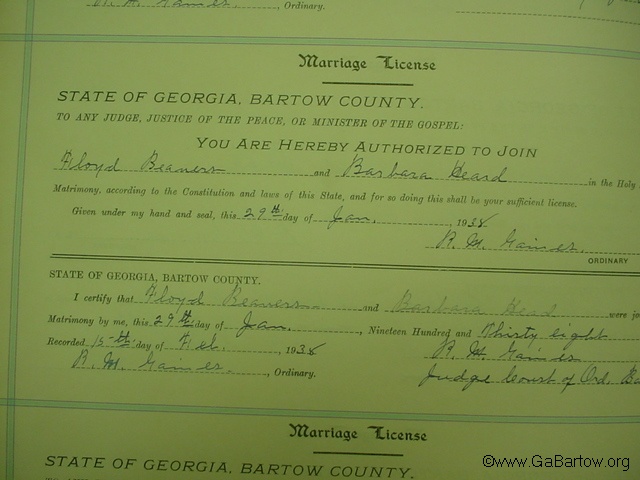 R. M. Gaines , Ordinary.
Marriage License
STATE OF GEORGIA, BARTOW COUNTY.
TO ANY JUDGE, JUSTICE OF THE PEACE, OR MINISTER OF THE GOSPEL:
YOU ARE HEREBY AUTHORIZED TO JOIN
Floyd Beavers and Barbara Heard in the Holy
Matrimony, according to the Constitution and laws of this State, and for so doing this shall be your sufficient license.
Given under my hand and seal, this 29th day of Jan. , 1938
R. M. Gaines
ORDINARY
STATE OF GEORGIA, BARTOW COUNTY.
I certify that Floyd Beavers and Barbara Heard were jo
Matrimony by me, this 29th day of Jan. , Nineteen Hundred and Thirty eight
Recorded 15th day of Feb. , 1938 R. M. Gaines
R. M. Gaines , Ordinary. Judge Court of Ord. Ba
Marriage License
STATE OF GEORGIA, BARTOW COUNTY.
©www.GaBartow.org